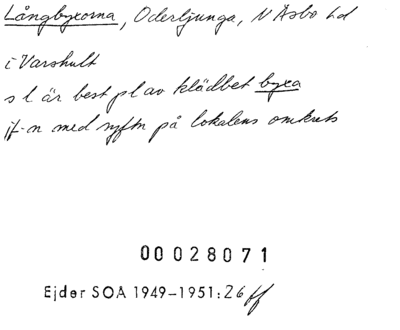 Långbyxorna, Oderljunga, N Åsbo hd
i Varshult
s l är best pl av klädbet byxa
jf-n med syftn på lokalens omkrets
00028071
Ejder SOA 1949-1951:26 ff